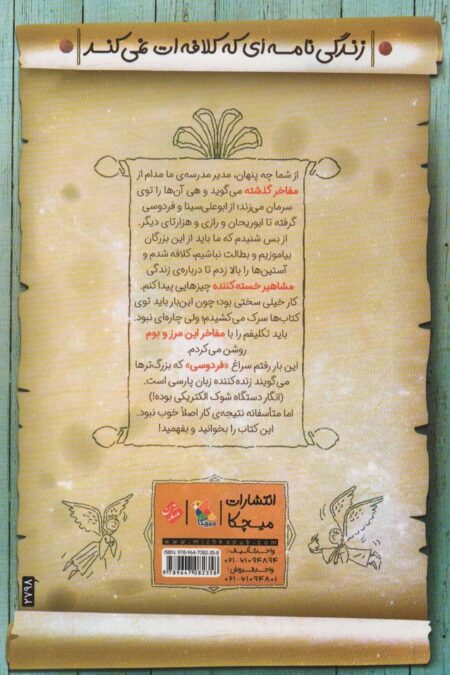 زندگی‌نامه‌ای که کلافه‌ات نمی‌کند
از شما چه پنهان، مدیر مدرسه‌ی ما مدام از
مفاخر گذشته می‌گوید و هی آن‌ها را توی
سرمان می‌زند؛ از ابوعلی‌سینا و فردوسی
گرفته تا ابوریحان و رازی و هزارتای دیگر.
از بس شنیدم که ما باید از این بزرگان
بیاموزیم و بطالت نباشیم، کلافه شدم و
آستین‌ها را بالا زدم تا درباره‌ی زندگی
مشاهیر خسته‌کننده چیزهایی پیدا کنم.
کار خیلی سختی بود؛ چون این‌بار باید توی
کتاب‌ها سرک می‌کشیدم؛ ولی چاره‌ای نبود.
باید تکلیفم را با مفاخر این مرز و بوم
روشن می‌کردم.
این بار رفتم سراغ «فردوسی» که بزرگ‌ترها
می‌گویند زنده‌کننده زبان پارسی است.
(انگار دستگاه شوک الکتریکی بوده!)
اما متأسفانه نتیجه‌ی کار اصلاً خوب نبود.
این کتاب را بخوانید و بفهمید!
انتشارات
میچکا
میچکا
www.michkapub.com
واحد تألیف:
۰۲۱-۶۱۰۹۴۸۹۴
واحد فروش:
۰۲۱-۶۱۰۹۴۸۰۱
ISBN: 978-964-7082-35-8
9789647082358
۲۷۹۸